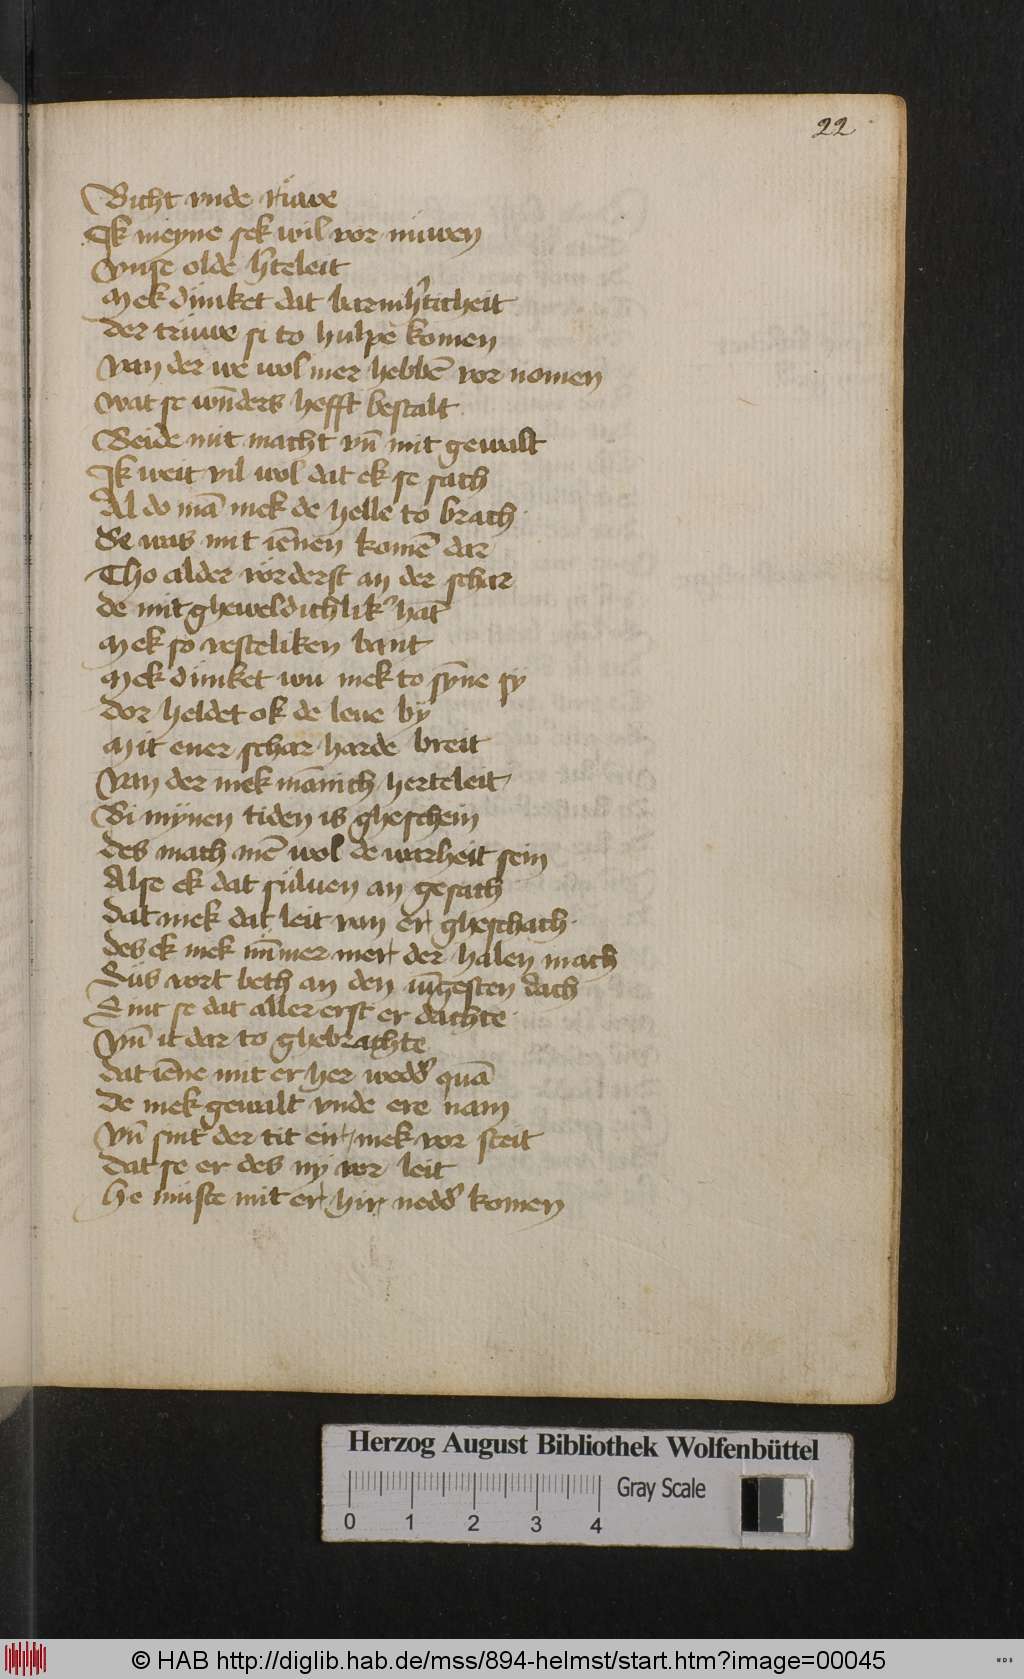 22
Bicht vnde růwe
Ik meyne sek wil vor nuwen
Vnse olde h̓teleit
Mek dunket dat barmh̓ticheit
der truwe si to hulpe komen
Van der we wol mer hebbē vor nomen
wat se wūders hefft bestalt
Beide mit macht vn̄ mit gewalt
Ik weit vil wol dat ek se sach
Al do mā mek de helle to brach
Se was mit iēnen komē dar
Tho alder vorderst an der schar
de mit gheweldichlik̓ hāt
Mek so vesteliken bant
Mek dunket wu mek to sȳne sy
dor heldet ok de leue by
Mit ener schar harde breit
Van der mek mānich herteleit
Bi mynen tiden is gheschein
des mach mē wol de warheit sein
Alse ek dat suluen an gesach
dat mek dat leit van er gheschach
des ek mek nū̄mer mer der halen mach
Sus vort beth an den iūgesten dach
Sint se dat aller erst er dachte
Vn̄ it dar to ghebrachte
dat iēne mit er her wedd̓ quā
De mek gewalt vnde ere nam
Vn̄ sint der tit eir mek vor steit
dat se er des ny vor leit
he muste mit er hir nedd̓ komen
Herzog August Bibliothek Wolfenbüttel
Gray Scale
0 1 2 3 4
© HAB http://diglib.hab.de/mss/894-helmst/start.htm?image=00045